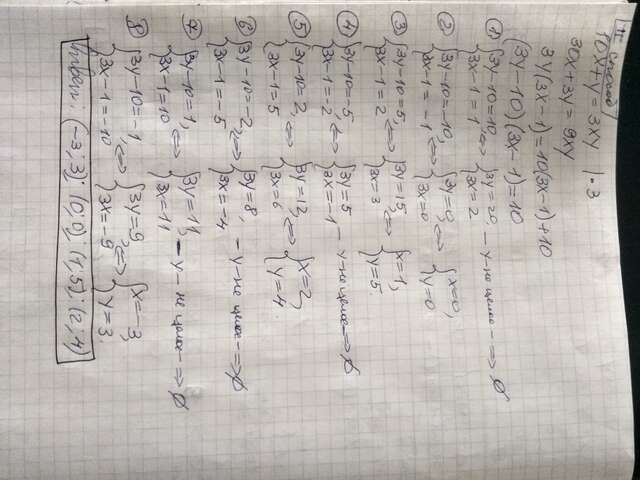 II способ
10x+y=3xy |·3
30x+3y=9xy
3y(3x-1)=10(3x-1)+10
(3y-10)(3x-1)=10
① {3y-10=10, 3x-1=1 <=> {3y=20, 3x=2 - y-не целое => ∅
② {3y-10=-10, 3x-1=-1 <=> {3y=0, 3x=0 <=> {x=0, y=0
③ {3y-10=5, 3x-1=2 <=> {3y=15, 3x=3 {x=1, y=5.
④ {3y-10=-5, 3x-1=-2 <=> {3y=5 3x=-1 - y-не целое => ∅
⑤ {3y-10=2, 3x-1=5 <=> {3y=12, 3x=6 <=> {x=2, y=4.
⑥ {3y-10=-2, 3x-1=-5 <=> {3y=8, 3x=-4 - y-не целое => ∅
⑦ {3y-10=1, 3x-1=10 <=> {3y=11, 3x=11 - y-не целое => ∅
⑧ {3y-10=-1, 3x-1=-10 <=> {3y=9 3x=-9 <=> {x=-3, y=3.
Ответ: (-3;3); (0;0); (1;5); (2;4)